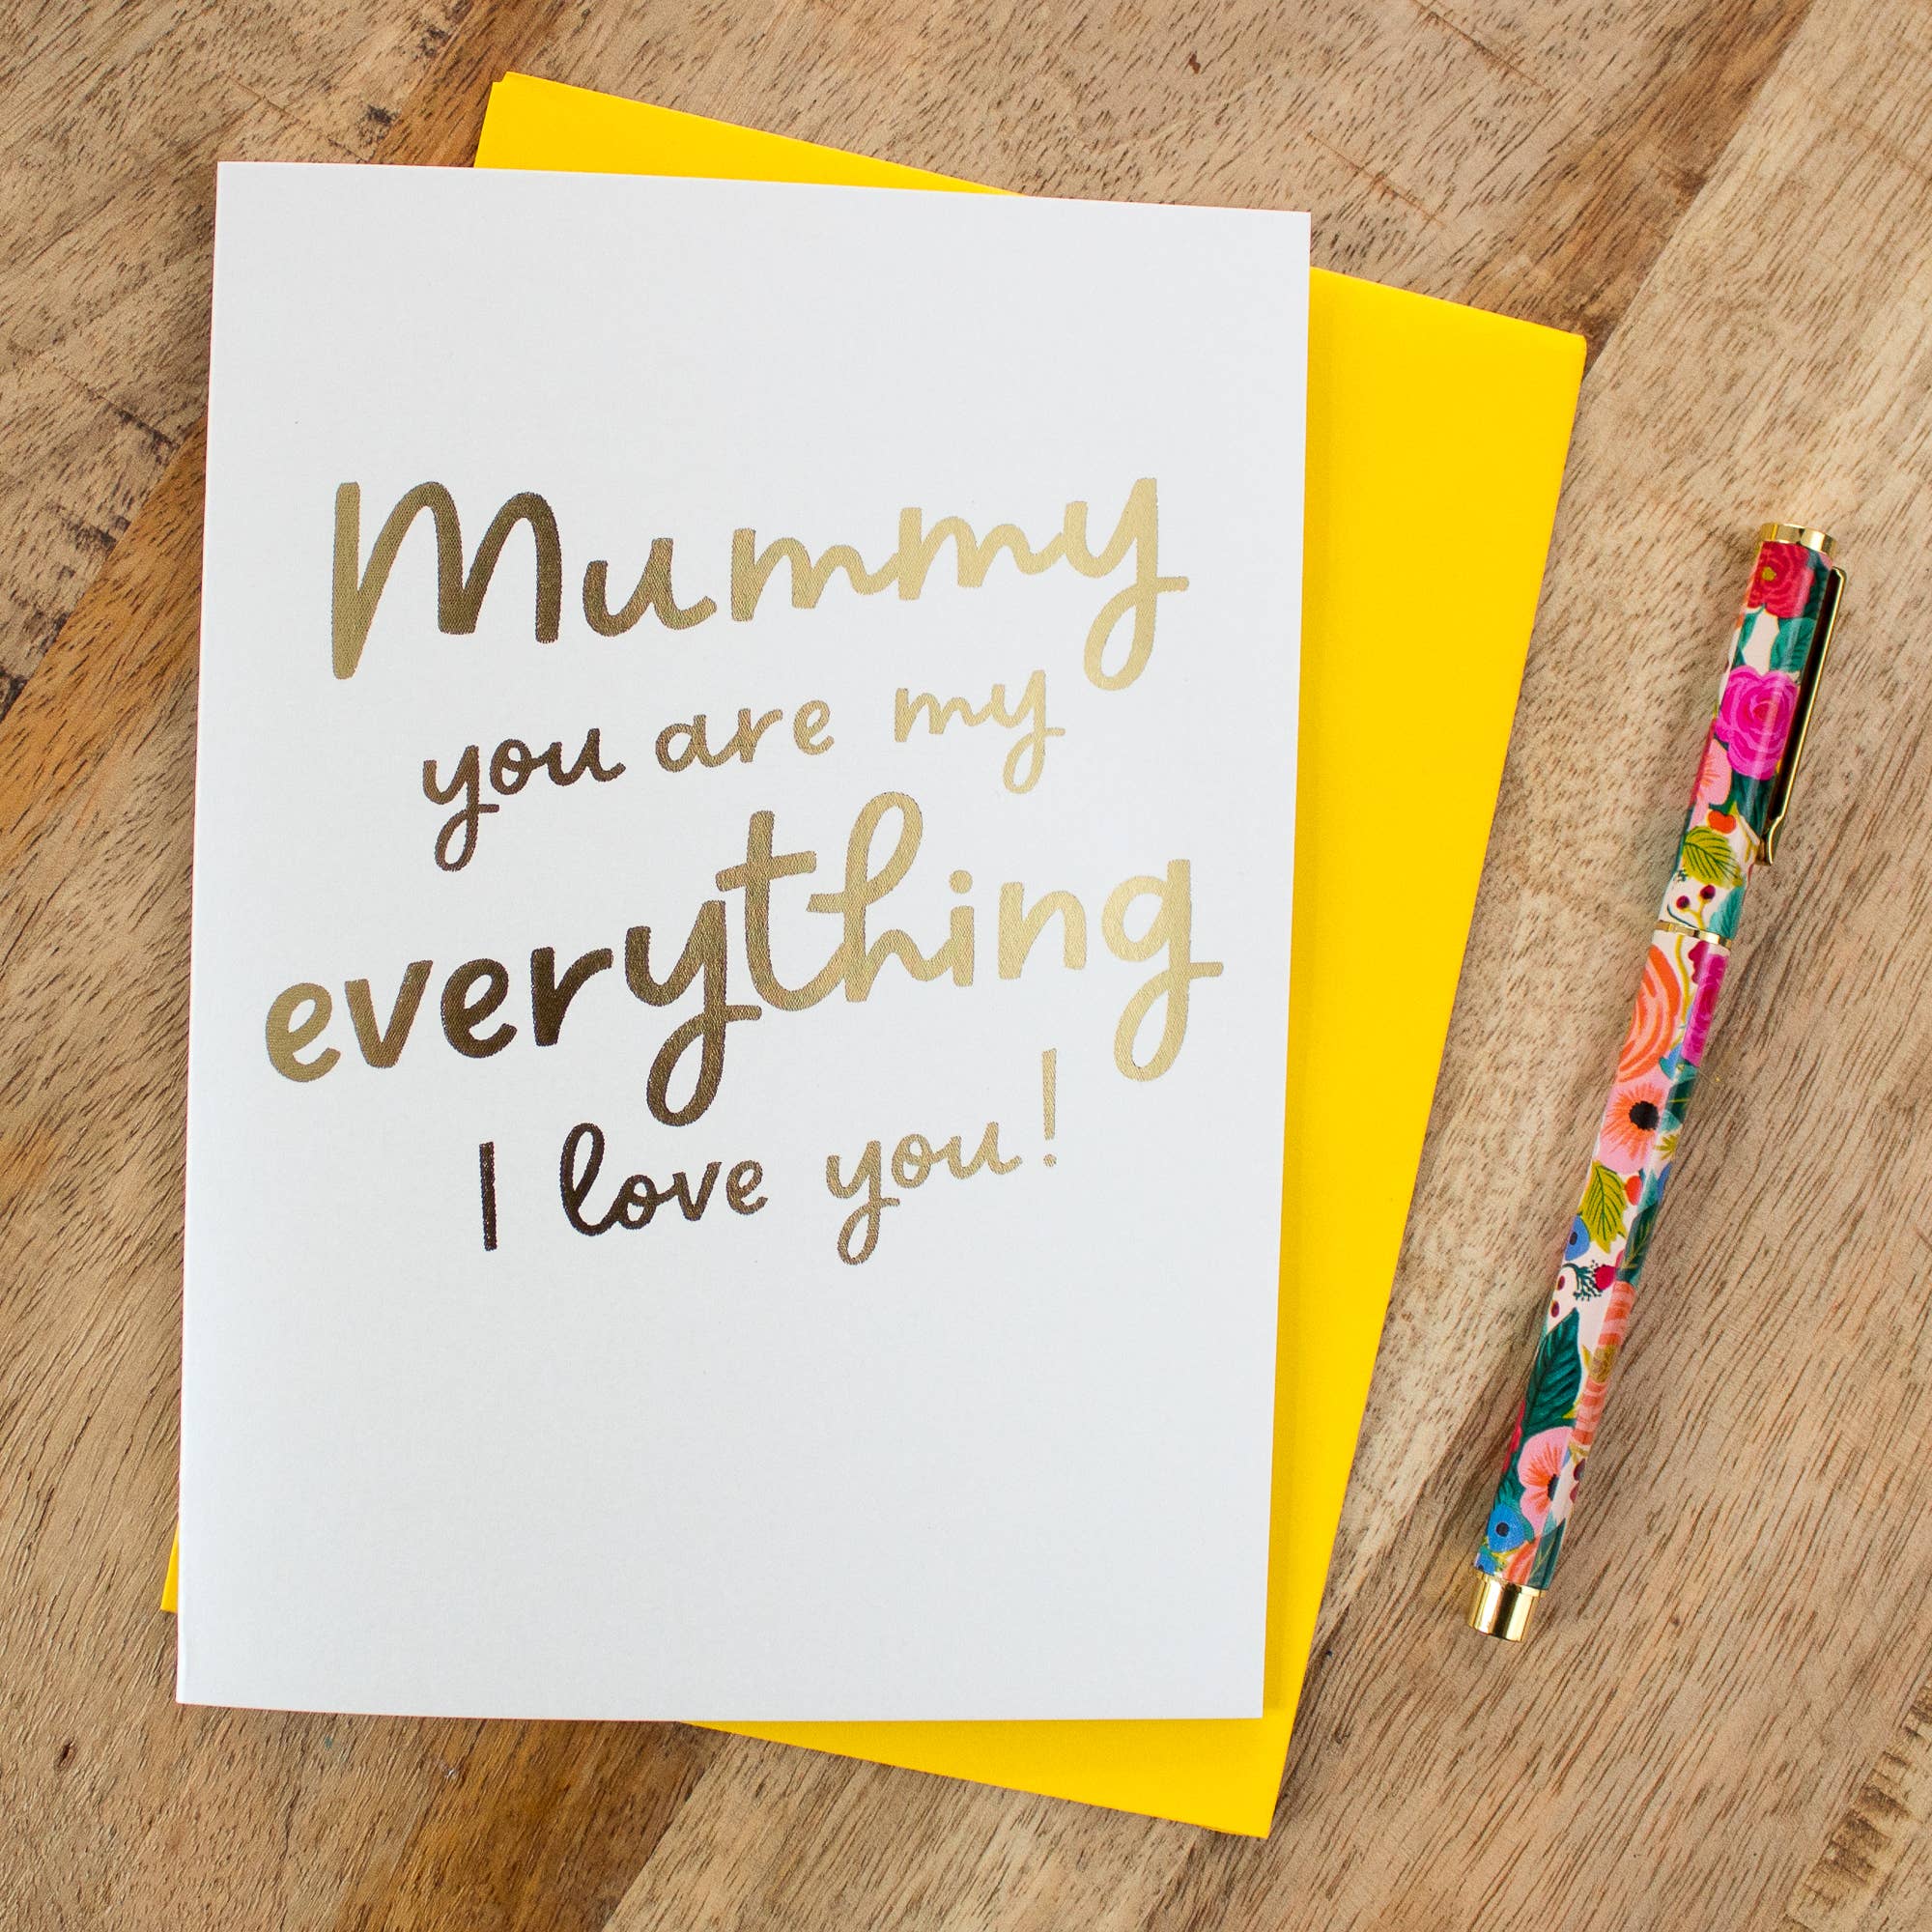 Mummy
you are my
everything
I love you!